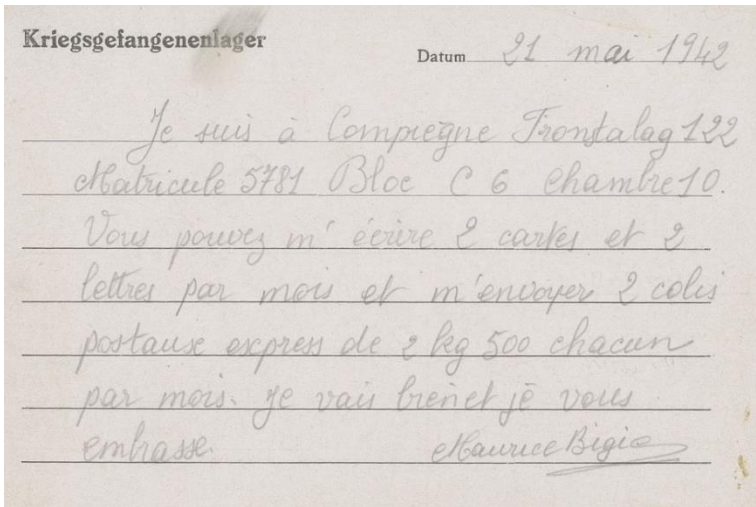 Kriegsgefangenenlager
Datum 21 mai 1942
Je suis à Compiègne Frontalag 122
Matricule 5781 Bloc C 6 chambre 10.
Vous pouvez m'écrire 2 cartes et 2
lettres par mois et m'envoyer 2 colis
postaux express de 2 kg 500 chacun
par mois. Je vais bien et je vous
embrasse. Maurice Bigio